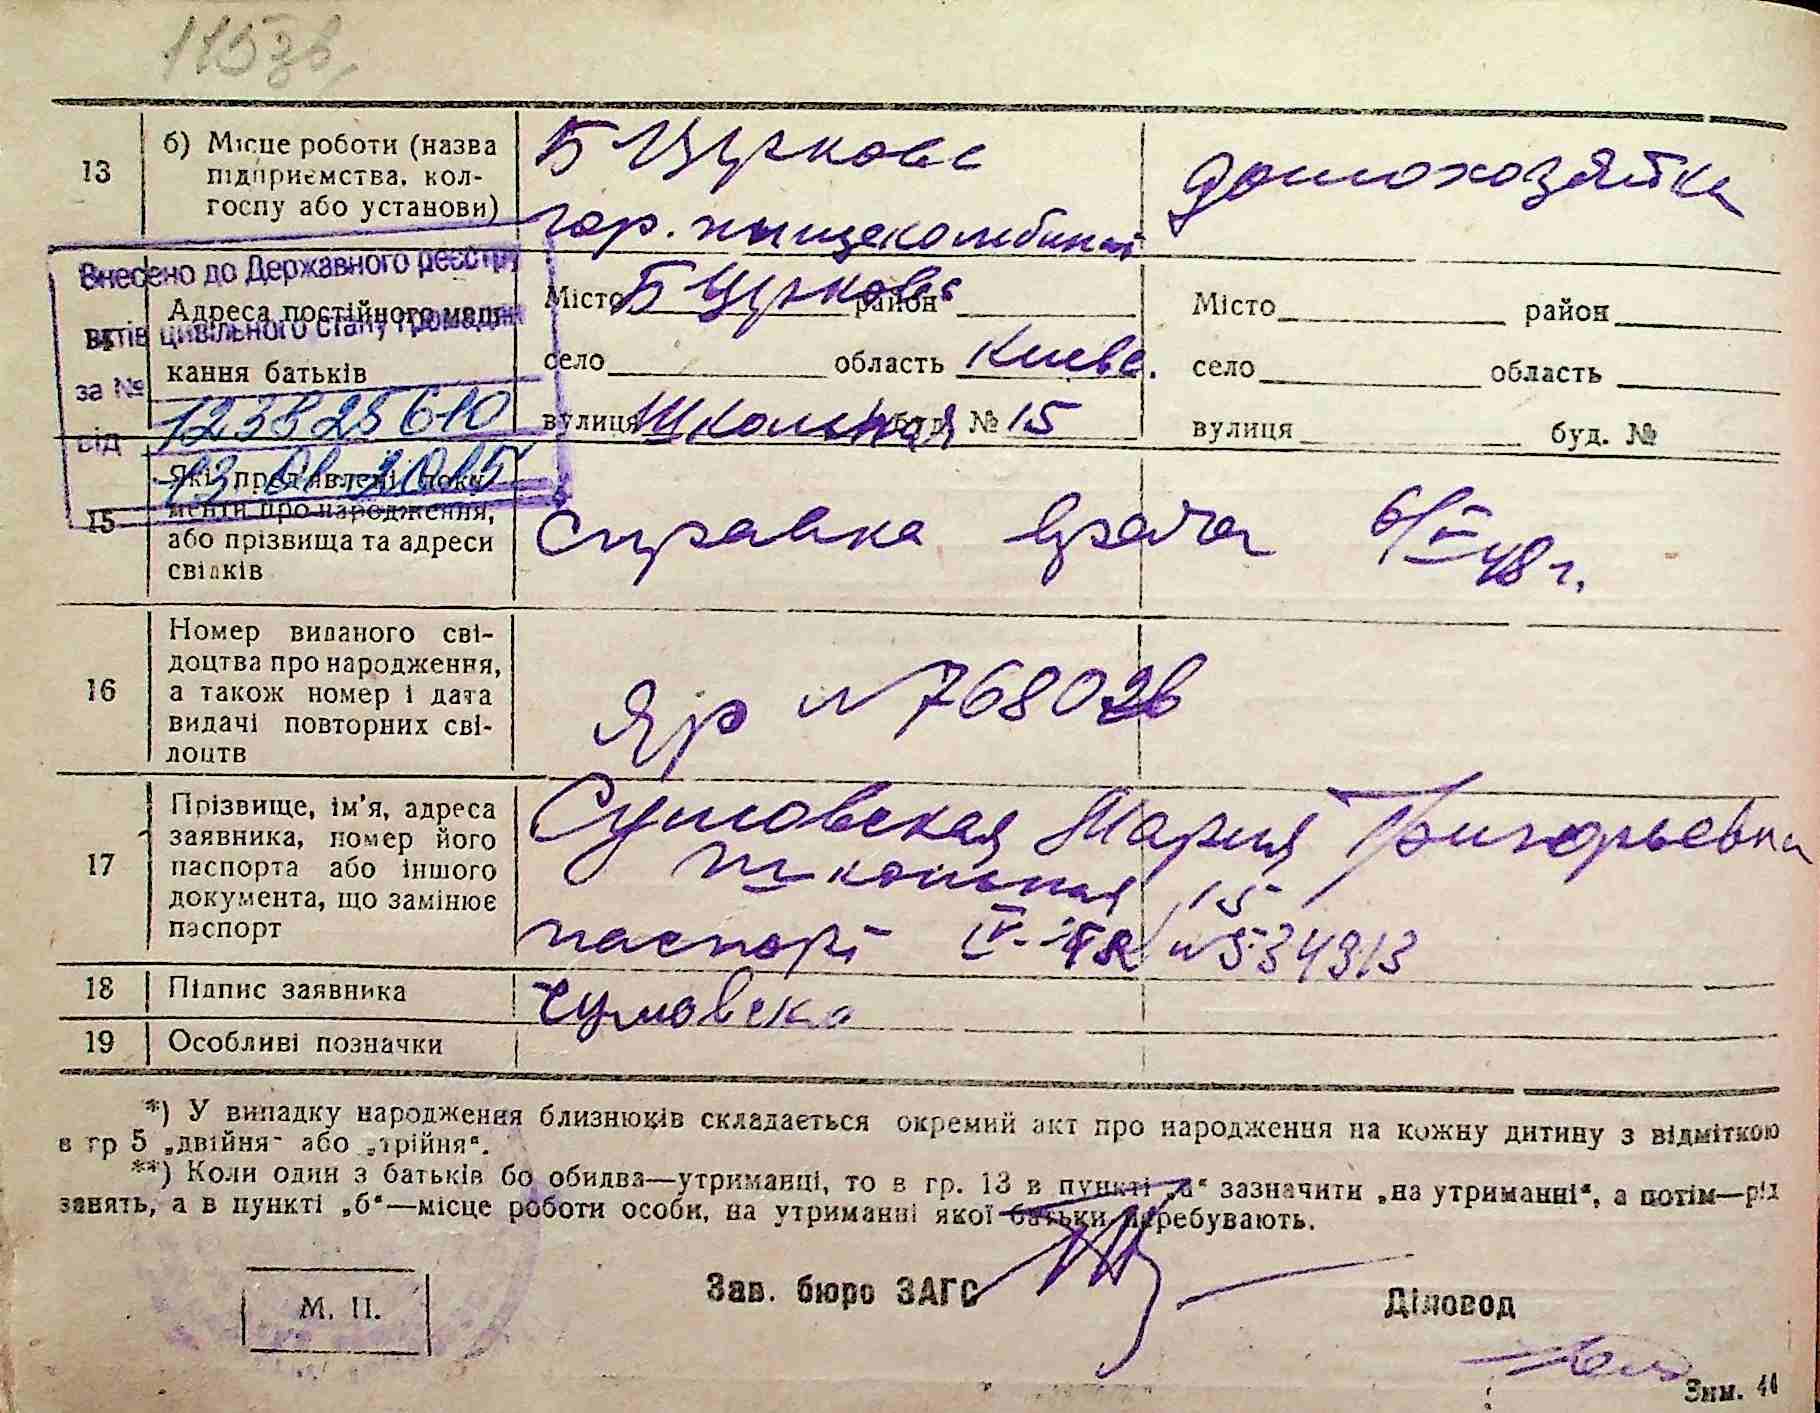 115зв,
13
б) Місце роботи (назва
підприємства, кол-
госпу або установи)
Б Церкова
гор. пищекомбинат
домохозяйка
Внесено до Державного реєстру
актів цивільного стану громадян
за № 123825610
від 13 01 2015
Адреса постійного меш-
кання батьків
Місто Б Церкова район
село область Киевс.
вулиця Школьная буд. № 15
Місто район
село область
вулиця буд. №
15
Які пред'явлені доку-
менти про народження,
або прізвища та адреси
свідків
Справка врача 6/ 48 г.
16
Номер виданого сві-
доцтва про народження,
а також номер і дата
видачі повторних сві-
доцтв
ЯР № 768026
17
Прізвище, ім'я, адреса
заявника, номер його
паспорта або іншого
документа, що замінює
паспорт
Сумовская Мария Григорьевна
Школьная 15
паспорт IV- № 534913
18
Підпис заявника
Сумовска
19
Особливі позначки
*) У випадку народження близнюків складається окремий акт про народження на кожну дитину з відміткою
в гр 5 „двійня" або „трійня".
**) Коли один з батьків бо обидва—утриманці, то в гр. 13 в пункті „а" зазначити „на утриманні", а потім—рід
занять, а в пункті „б"—місце роботи особи, на утриманні якої батьки перебувають.
М. П.
Зав. бюро ЗАГС
Діловод
Зим. 44